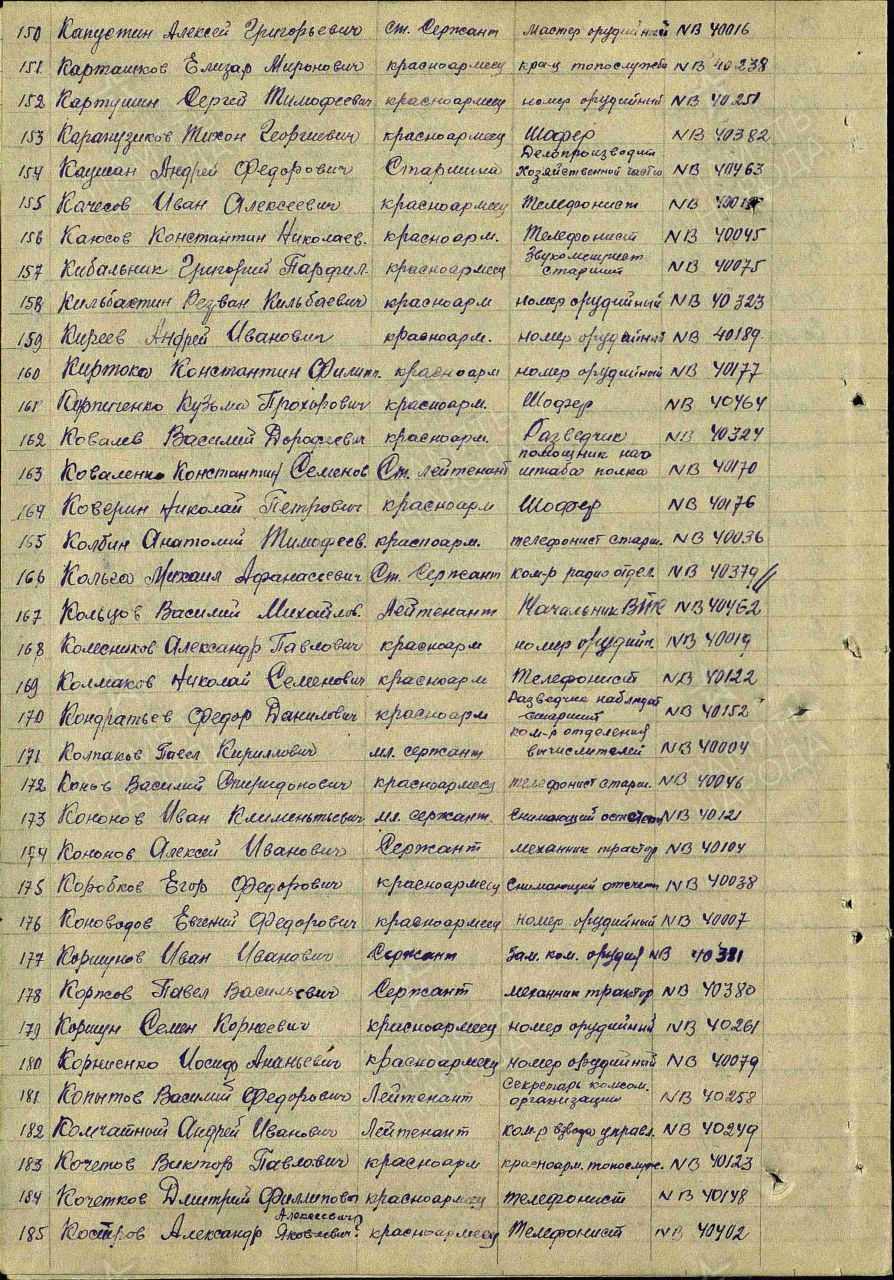 150 Капустин Алексей Григорьевич ст. Сержант мастер орудийный NB 40016
151 Карташков Елизар Миронович красноармеец кра-ц топослужбы NB 40238
152 Картушин Сергей Тимофеевич красноармеец номер орудийный NB 40251
153 Карапузиков Тихон Георгиевич красноармеец Шофер NB 40382
154 Кауман Андрей Федорович Старшина Делопроизводит
Хозяйственной части NB 40463
155 Качесов Иван Алексеевич красноармеец Телефонист NB
156 Каюсов Константин Николаев. красноарм. Телефонист NB 40045
157 Кибальник Григорий Парфил. красноармеец Звукометрист
старший NB 40075
158 Кильбактин Резван Кильбаевич красноарм номер орудийный NB 40323
159 Киреев Андрей Иванович красноарм. номер орудийный NB 40189
160 Киртока Константин Филипп. красноарм номер орудийный NB 40177
161 Кирпиченко Кузьма Прохорович красноарм. Шофер NB 40464
162 Ковалев Василий Дорофеевич красноарм. Разведчик NB 40324
163 Коваленко Константин Семенов Ст. лейтенант помощник нач
штаба полка NB 40170
164 Коверин Николай Петрович красноарм Шофер NB 40176
165 Колбин Анатолий Тимофеев. красноарм. телефонист старш. NB 40036
166 Кольга Михаил Афанасьевич Ст. Сержант ком-р радио отдел. NB 40379
167 Кольцов Василий Михайлов. Лейтенант Начальник NB 40462
168 Колесников Александр Павлович красноарм номер орудийн. NB 40019
169 Колмаков Николай Семенович красноарм Телефонист NB 40122
170 Кондратьев Федор Данилович красноарм Разведчик наблюдат
старший NB 40152
171 Колпаков Павел Кириллович мл. сержант ком-р отделения
вычислителей NB 40004
172 Конов Василий Спиридонович красноармеец телефонист старш. NB 40046
173 Кононов Иван Клименьтьевич мл. сержант. Снимающий отсчеты NB 40121
174 Кононов Алексей Иванович Сержант механик трактор NB 40104
175 Коробков Егор Федорович красноармеец Снимающий отсчеты NB 40038
176 Коноводов Евгений Федорович красноармеец номер орудийный NB 40007
177 Коршунов Иван Иванович Сержант Зам. ком. орудия NB 40381
178 Коржов Павел Васильевич Сержант механик трактор NB 40380
179 Коршун Семен Корнеевич красноармеец номер орудийный NB 40261
180 Корниенко Иосиф Ананьевич красноармеец номер орудийный NB 40079
181 Копытов Василий Федорович Лейтенант Секретарь комсом.
организации NB 40258
182 Комчатный Андрей Иванович Лейтенант ком-р взвода управл. NB 40249
183 Кочетов Виктор Павлович красноарм красноарм. топослуж. NB 40123
184 Кочетков Дмитрий Филлипович красноармеец телефонист NB 40148
185 Костров Александр Алексеевич
Яковлевич? красноармеец Телефонист NB 40402